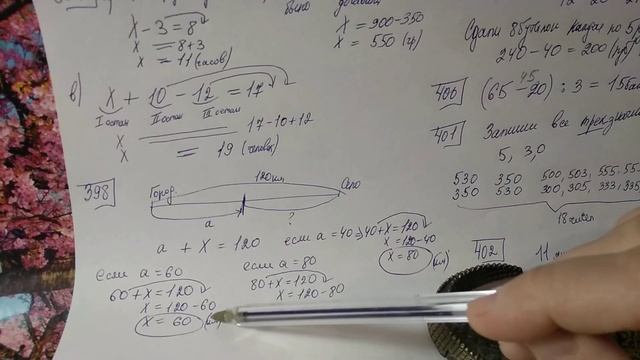 x - 3 = 8
x = 8+3
x = 11 (часов)
было
x = 900-350
x = 550 (гр)
Сдали 8 бутылок каждая по 5 р
240 - 40 = 200 (гр)
в) x + 10 - 12 = 17
I остан II остан III остан
x = 17-10+12
x = 19 (человек)
400 (65 - 20) : 3 = 15
45
401 Запиши все трехзначн
5, 3, 0
530 350 500, 503, 555, 55
350 530 300, 305, 333, 335
18 чисел
398
120 км
Город Село
a ?
a + x = 120
если a = 40 => 40 + x = 120
x = 120-40
x = 80 (км)
если a = 60
60 + x = 120
x = 120 - 60
x = 60 (км)
если a = 80
80 + x = 120
x = 120 - 80
402 11